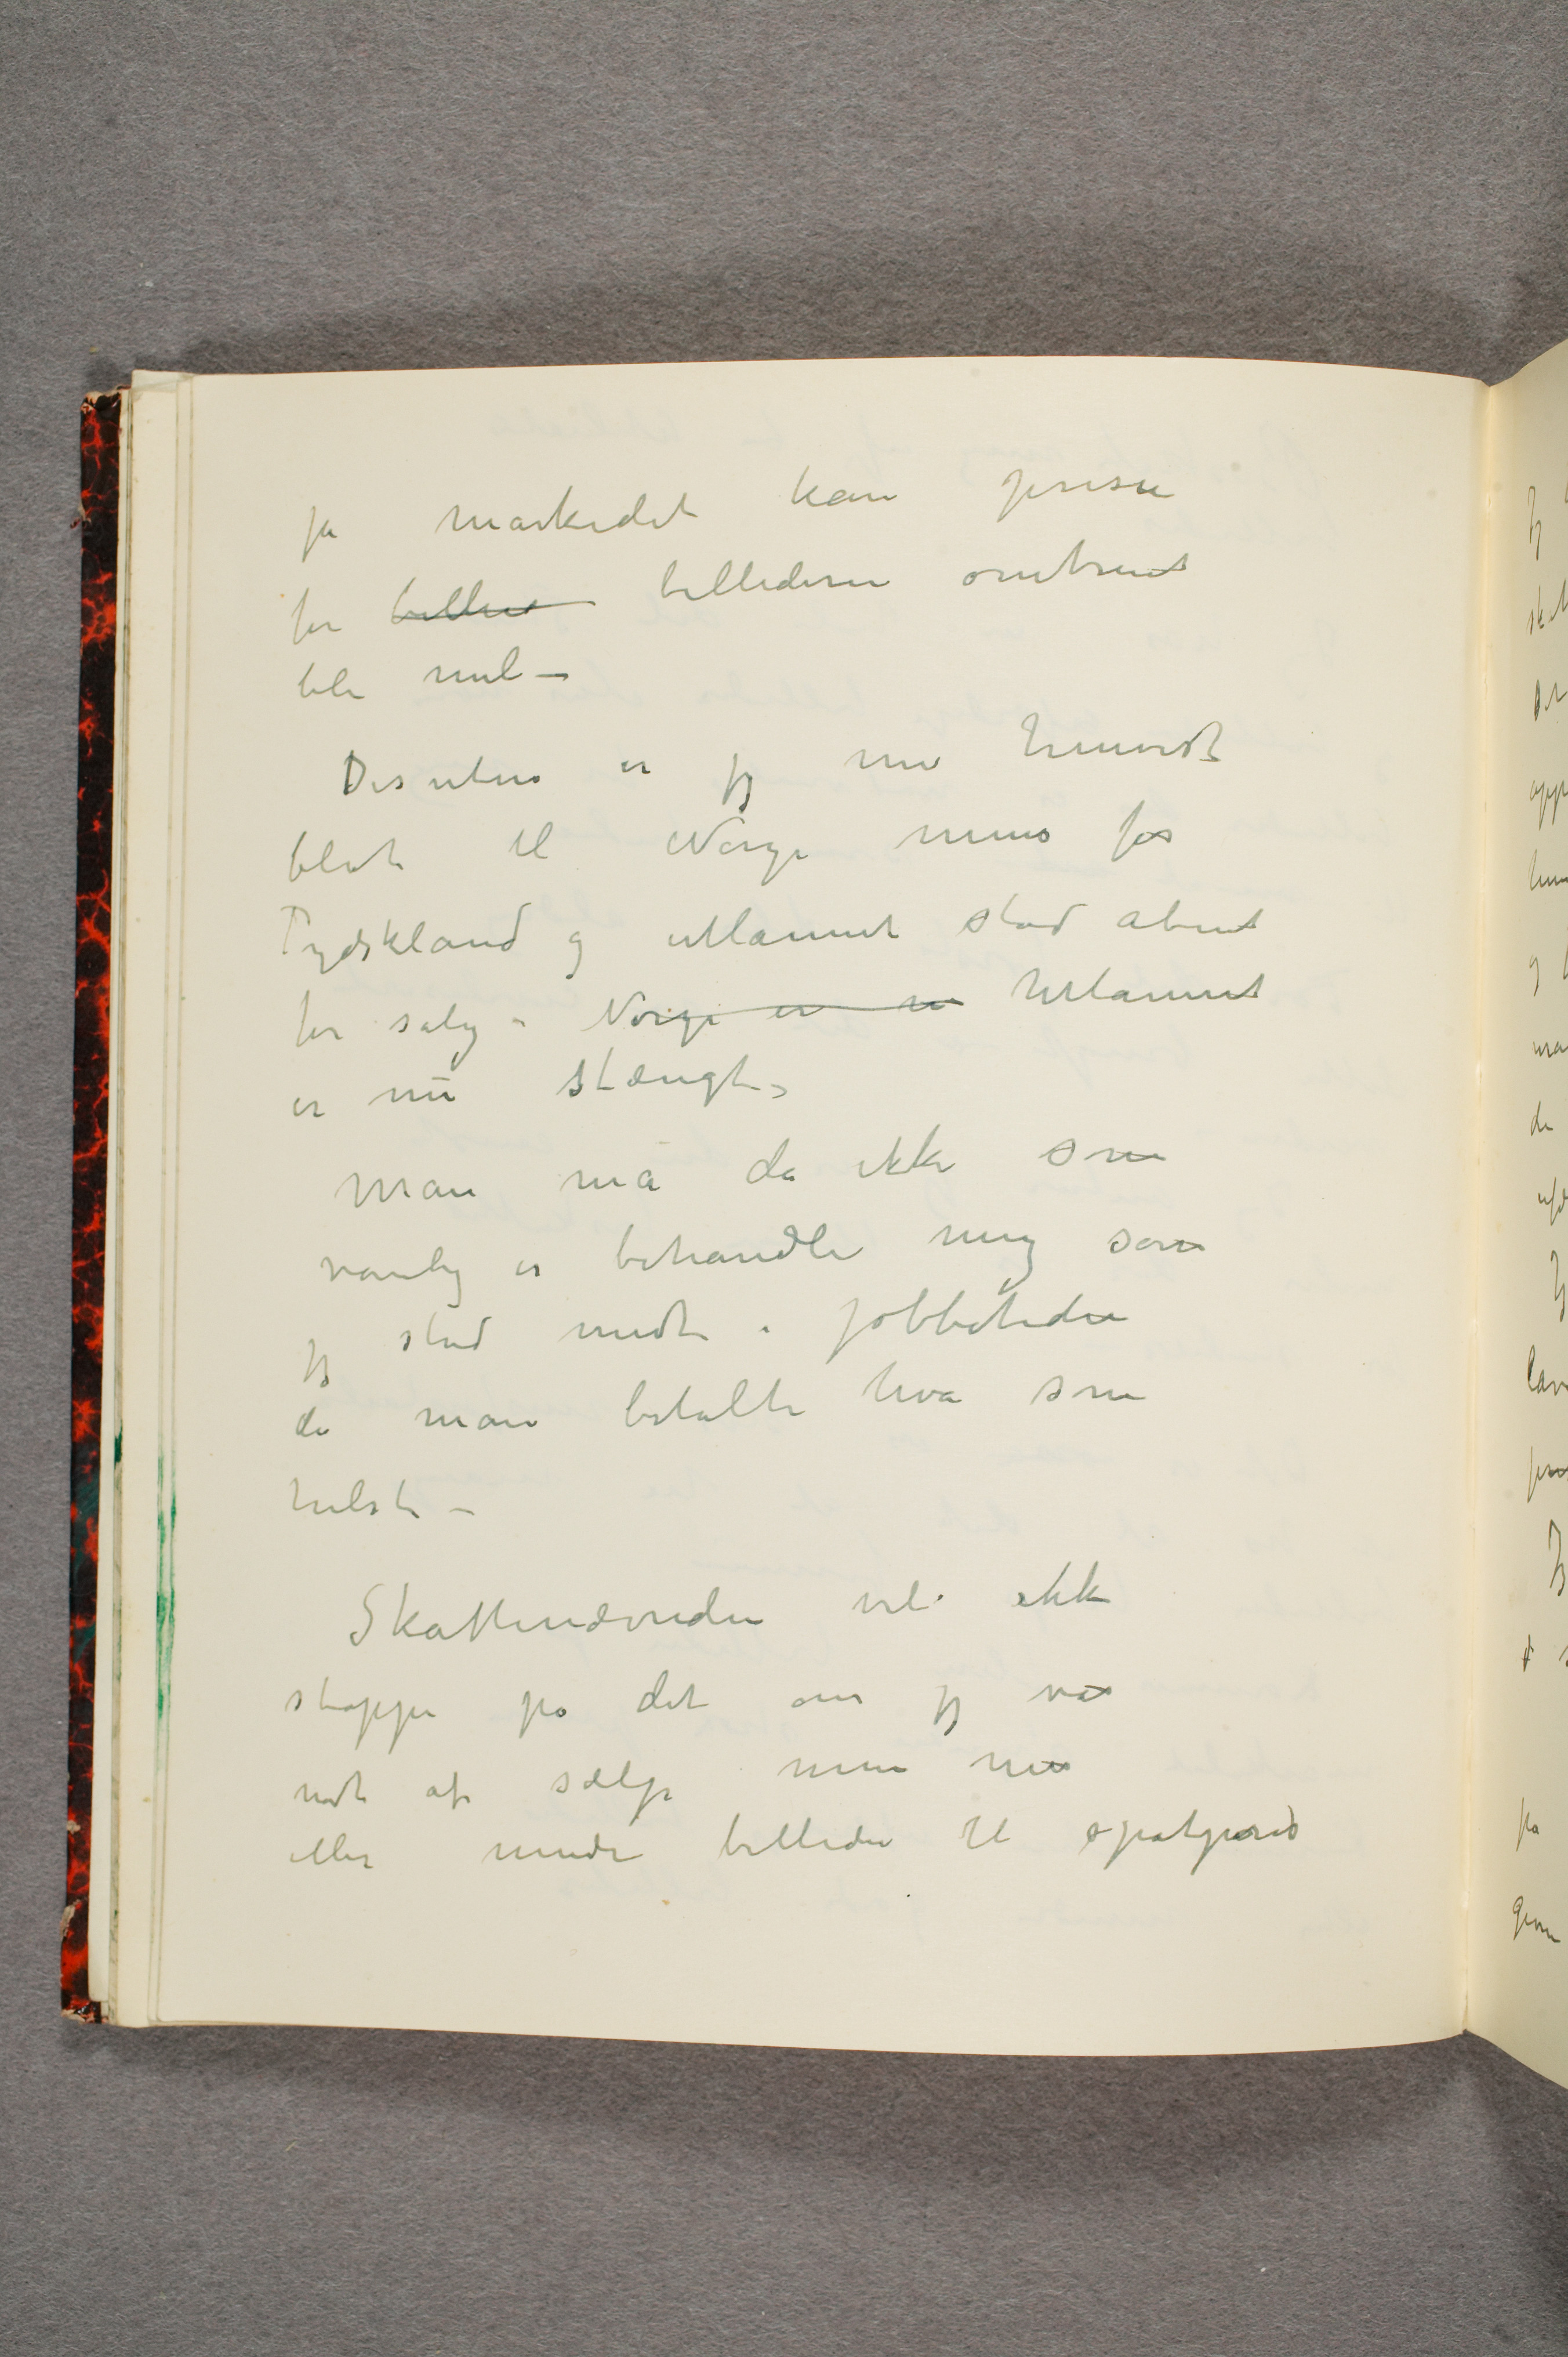 på markedet kan prisen
for billere billederne omtrent
bli nul –
Desuten er jeg nu henvist
blot til Norge mens før
Tydskland og utlannet stod åbent
for salg – Norge er nu Utlannet
er nu stængt –
Man må da ikke som
vanlig er behandle mig som
jeg stod midt i jobbetiden
da man betalte hva som
helst –
Skattenævnden vil ikke
stoppe på det om jeg var
nødt at sælge mine mer
eller mindre billeder til spotpris